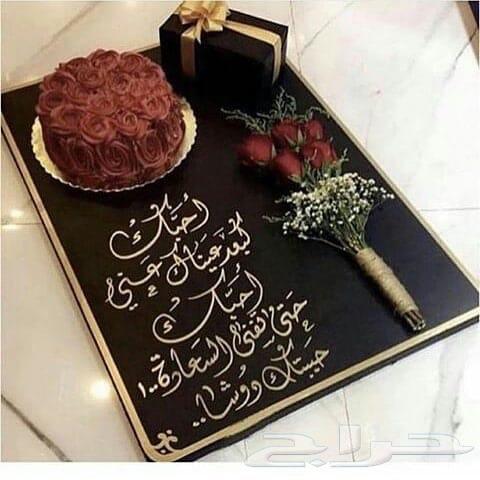 أحبّك
لبعد عيناك عني
أحبّك
حتى تفنى السعادة..!
حبيبتك دوشا..
حراج